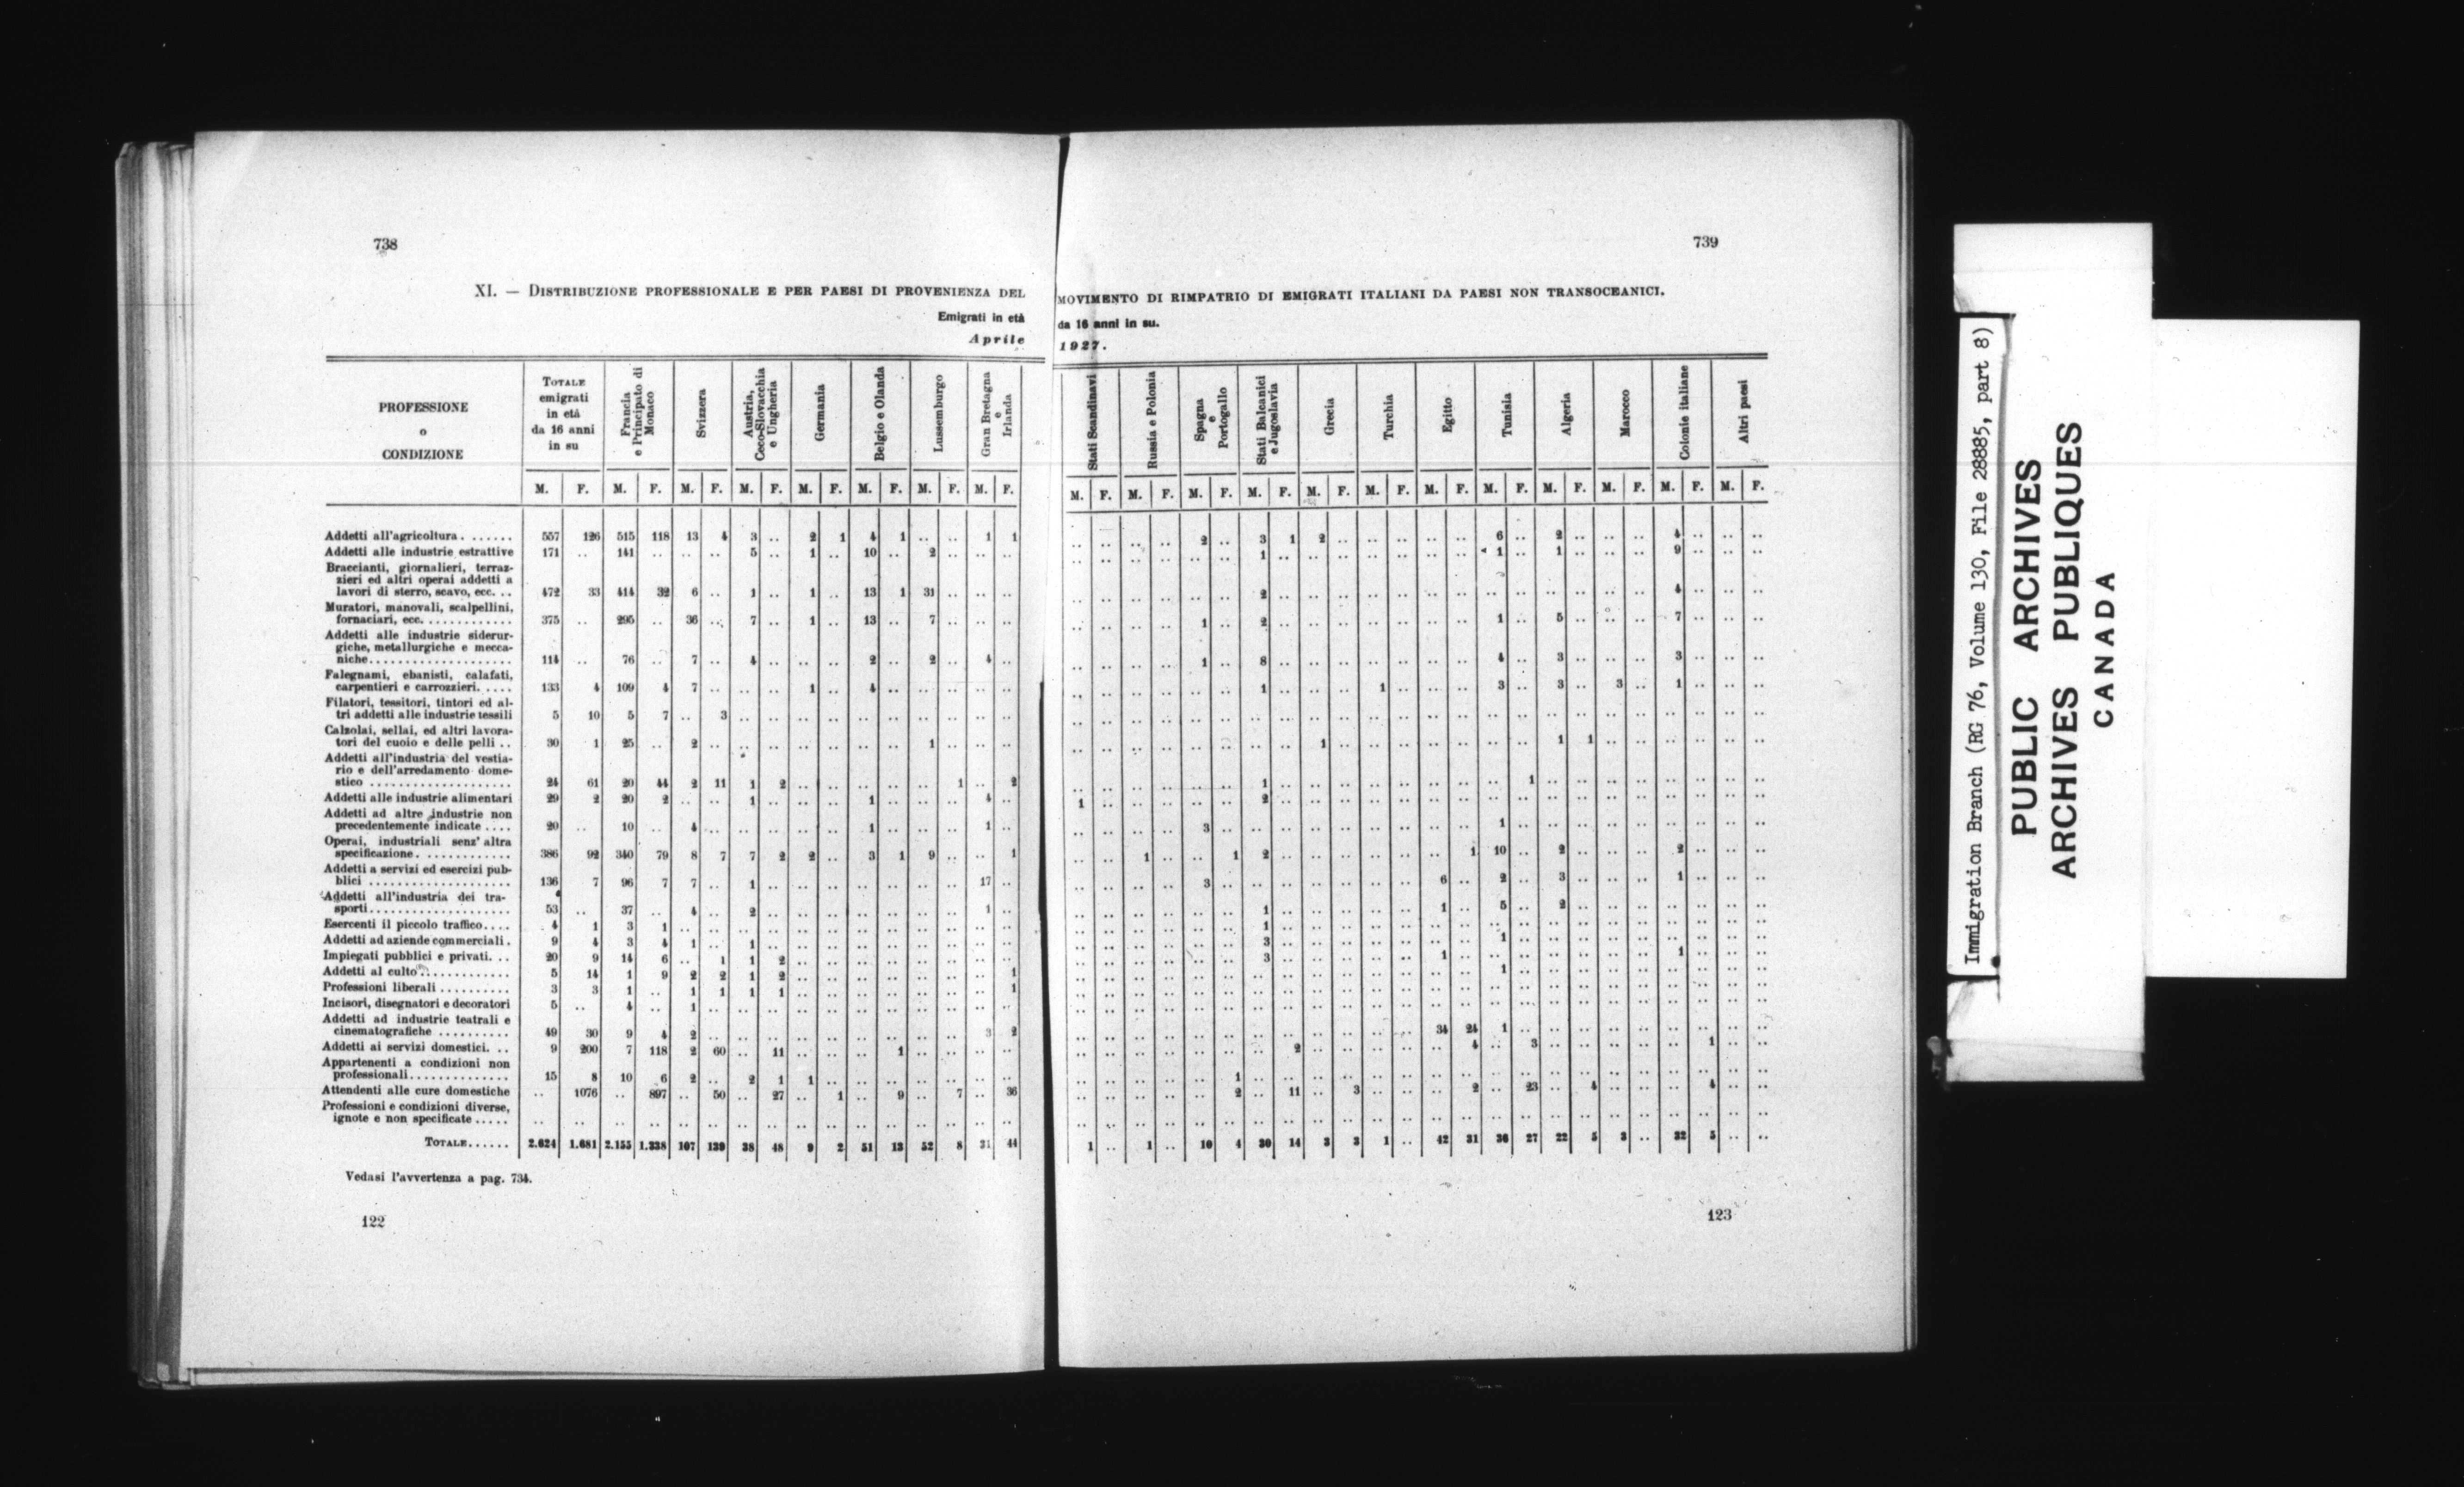 738
XI. — DISTRIBUZIONE PROFESSIONALE E PER PAESI DI PROVENIENZA DEL
Emigrati in età
Aprile
PROFESSIONE o CONDIZIONE | TOTALE emigrati in età da 16 anni in su | Francia e Principato di Monaco | Svizzera | Austria, Ceco-Slovacchia e Ungheria | Germania | Belgio e Olanda | Lussemburgo | Gran Bretagna e Irlanda
M. F. M. F. M. F. M. F. M. F. M. F. M. F. M. F.
Addetti all'agricoltura....... 557 126 515 118 13 4 3 .. 2 1 4 1 .. .. 1 1
Addetti alle industrie estrattive 171 .. 141 .. .. .. 5 .. 1 .. 10 .. 2 .. .. ..
Braccianti, giornalieri, terraz-
zieri ed altri operai addetti a
lavori di sterro, scavo, ecc. .. 472 33 414 32 6 .. 1 .. 1 .. 13 1 31 .. .. ..
Muratori, manovali, scalpellini,
fornaciari, ecc. ............ 375 .. 295 .. 36 .. 7 .. 1 .. 13 .. 7 .. .. ..
Addetti alle industrie siderur-
giche, metallurgiche e mecca-
niche.................... 114 .. 76 .. 7 .. 4 .. .. .. 2 .. 2 .. 4 ..
Falegnami, ebanisti, calafati,
carpentieri e carrozzieri. .... 133 4 109 4 7 .. .. .. 1 .. 4 .. .. .. .. ..
Filatori, tessitori, tintori ed al-
tri addetti alle industrie tessili 5 10 5 7 .. 3 .. .. .. .. .. .. .. .. .. ..
Calzolai, sellai, ed altri lavora-
tori del cuoio e delle pelli .. 30 1 25 .. 2 .. .. .. .. .. .. .. 1 .. .. ..
Addetti all'industria del vestia-
rio e dell'arredamento dome-
stico .................... 24 61 20 44 2 11 1 2 .. .. .. .. .. 1 .. 2
Addetti alle industrie alimentari 29 2 20 2 .. .. 1 .. .. .. 1 .. .. .. 4 ..
Addetti ad altre industrie non
precedentemente indicate .... 20 .. 10 .. 4 .. .. .. .. .. 1 .. .. .. 1 ..
Operai, industriali senz' altra
specificazione. ............ 386 92 340 79 8 7 7 2 2 .. 3 1 9 .. .. 1
Addetti a servizi ed esercizi pub-
blici .................... 136 7 96 7 7 .. 1 .. .. .. .. .. .. .. 17 ..
Addetti all'industria dei tra-
sporti.................... 53 .. 37 .. 4 .. 2 .. .. .. .. .. .. .. 1 ..
Esercenti il piccolo traffico.... 4 1 3 1 .. .. .. .. .. .. .. .. .. .. .. ..
Addetti ad aziende commerciali. 9 4 3 4 1 .. 1 .. .. .. .. .. .. .. .. ..
Impiegati pubblici e privati. .. 20 9 14 6 .. 1 1 2 .. .. .. .. .. .. .. ..
Addetti al culto............. 5 14 1 9 2 2 1 2 .. .. .. .. .. .. .. 1
Professioni liberali .......... 3 3 1 .. 1 1 1 1 .. .. .. .. .. .. .. 1
Incisori, disegnatori e decoratori 5 .. 4 .. 1 .. .. .. .. .. .. .. .. .. .. ..
Addetti ad industrie teatrali e
cinematografiche .......... 49 30 9 4 2 .. .. .. .. .. .. .. .. .. 3 2
Addetti ai servizi domestici. .. 9 200 7 118 2 60 .. 11 .. .. .. 1 .. .. .. ..
Appartenenti a condizioni non
professionali.............. 15 8 10 6 2 .. 2 1 1 .. .. .. .. .. .. ..
Attendenti alle cure domestiche .. 1076 .. 897 .. 50 .. 27 .. 1 .. 9 .. 7 .. 36
Professioni e condizioni diverse,
ignote e non specificate ..... .. .. .. .. .. .. .. .. .. .. .. .. .. .. .. ..
TOTALE...... 2.624 1.681 2.155 1.338 107 139 38 48 9 2 51 13 52 8 31 44
Vedasi l'avvertenza a pag. 734.
122
739
MOVIMENTO DI RIMPATRIO DI EMIGRATI ITALIANI DA PAESI NON TRANSOCEANICI.
da 16 anni in su.
1927.
Stati Scandinavi | Russia e Polonia | Spagna e Portogallo | Stati Balcanici e Jugoslavia | Grecia | Turchia | Egitto | Tunisia | Algeria | Marocco | Colonie italiane | Altri paesi
M. F. M. F. M. F. M. F. M. F. M. F. M. F. M. F. M. F. M. F. M. F. M. F.
.. .. .. .. 2 .. 3 1 2 .. .. .. .. .. 6 .. 2 .. .. .. 4 .. .. ..
.. .. .. .. .. .. 1 .. .. .. .. .. .. .. 1 .. 1 .. .. .. 9 .. .. ..
.. .. .. .. .. .. 2 .. .. .. .. .. .. .. .. .. .. .. .. .. 4 .. .. ..
.. .. .. .. 1 .. 2 .. .. .. .. .. .. .. 1 .. 5 .. .. .. 7 .. .. ..
.. .. .. .. 1 .. 8 .. .. .. .. .. .. .. 4 .. 3 .. .. .. 3 .. .. ..
.. .. .. .. .. .. 1 .. .. .. 1 .. .. .. 3 .. 3 .. 3 .. 1 .. .. ..
.. .. .. .. .. .. .. .. .. .. .. .. .. .. .. .. .. .. .. .. .. .. .. ..
.. .. .. .. .. .. .. .. 1 .. .. .. .. .. .. .. 1 1 .. .. .. .. .. ..
.. .. .. .. .. .. 1 .. .. .. .. .. .. .. .. 1 .. .. .. .. .. .. .. ..
1 .. .. .. .. .. 2 .. .. .. .. .. .. .. .. .. .. .. .. .. .. .. .. ..
.. .. .. .. 3 .. .. .. .. .. .. .. .. .. 1 .. .. .. .. .. .. .. .. ..
.. .. 1 .. .. 1 2 .. .. .. .. .. .. 1 10 .. 2 .. .. .. 2 .. .. ..
.. .. .. .. 3 .. .. .. .. .. .. .. 6 .. 2 .. 3 .. .. .. 1 .. .. ..
.. .. .. .. .. .. 1 .. .. .. .. .. 1 .. 5 .. 2 .. .. .. .. .. .. ..
.. .. .. .. .. .. 1 .. .. .. .. .. .. .. .. .. .. .. .. .. .. .. .. ..
.. .. .. .. .. .. 3 .. .. .. .. .. .. .. 1 .. .. .. .. .. .. .. .. ..
.. .. .. .. .. .. 3 .. .. .. .. .. 1 .. .. .. .. .. .. .. 1 .. .. ..
.. .. .. .. .. .. .. .. .. .. .. .. .. .. 1 .. .. .. .. .. .. .. .. ..
.. .. .. .. .. .. .. .. .. .. .. .. .. .. .. .. .. .. .. .. .. .. .. ..
.. .. .. .. .. .. .. .. .. .. .. .. .. .. .. .. .. .. .. .. .. .. .. ..
.. .. .. .. .. .. .. .. .. .. .. .. 34 24 1 .. .. .. .. .. .. .. .. ..
.. .. .. .. .. .. .. 2 .. .. .. .. .. 4 .. 3 .. .. .. .. .. 1 .. ..
.. .. .. .. .. 1 .. .. .. .. .. .. .. .. .. .. .. .. .. .. .. .. .. ..
.. .. .. .. .. 2 .. 11 .. 3 .. .. .. 2 .. 23 .. 4 .. .. .. 4 .. ..
.. .. .. .. .. .. .. .. .. .. .. .. .. .. .. .. .. .. .. .. .. .. .. ..
1 .. 1 .. 10 4 30 14 3 3 1 .. 42 31 36 27 22 5 3 .. 32 5 .. ..
123
Immigration Branch (RG 76, Volume 130, File 28885, part 8)
PUBLIC ARCHIVES
ARCHIVES PUBLIQUES
CANADA